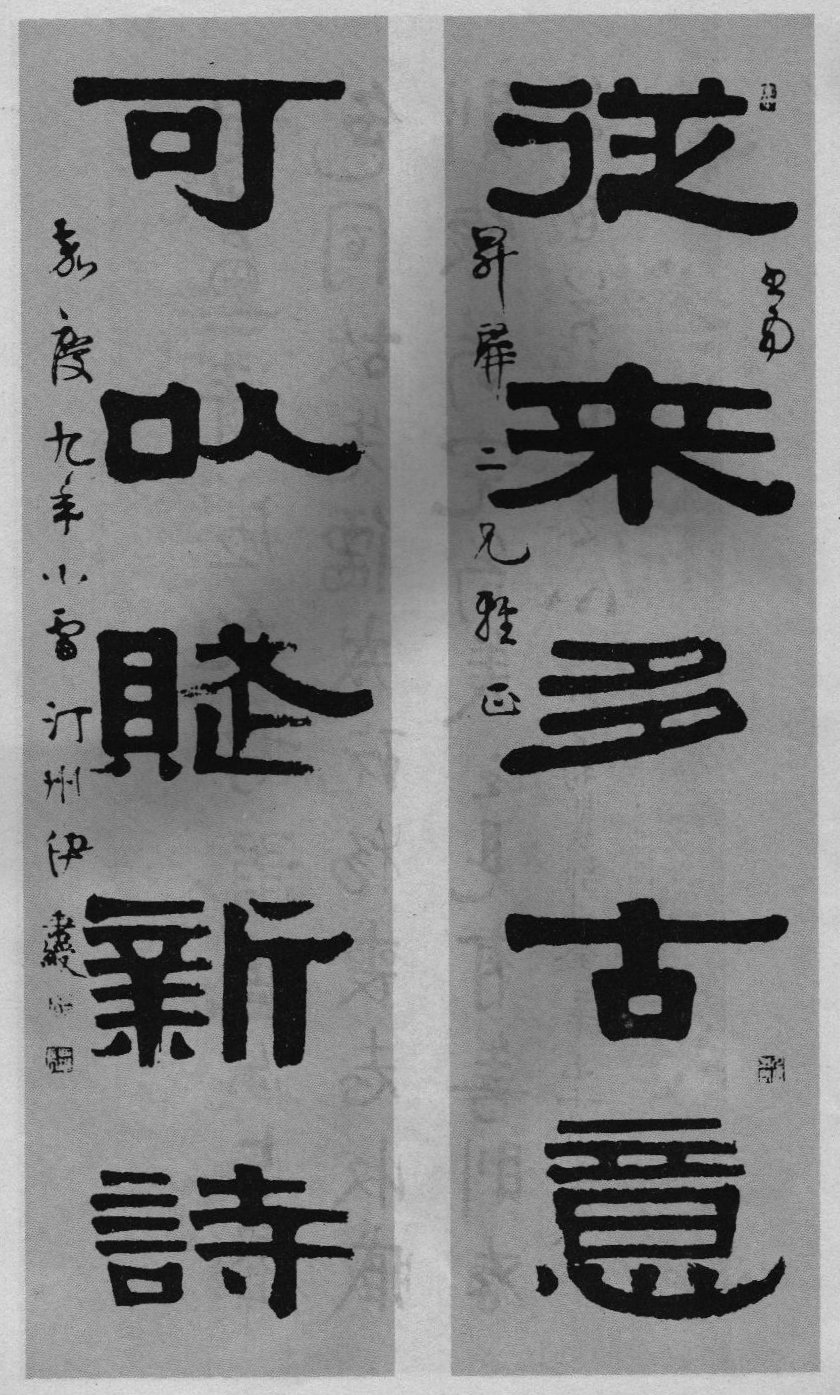 書為
從來多古意
昇屏二兄雅正
可以賦新詩
嘉慶九年小雪汀州伊